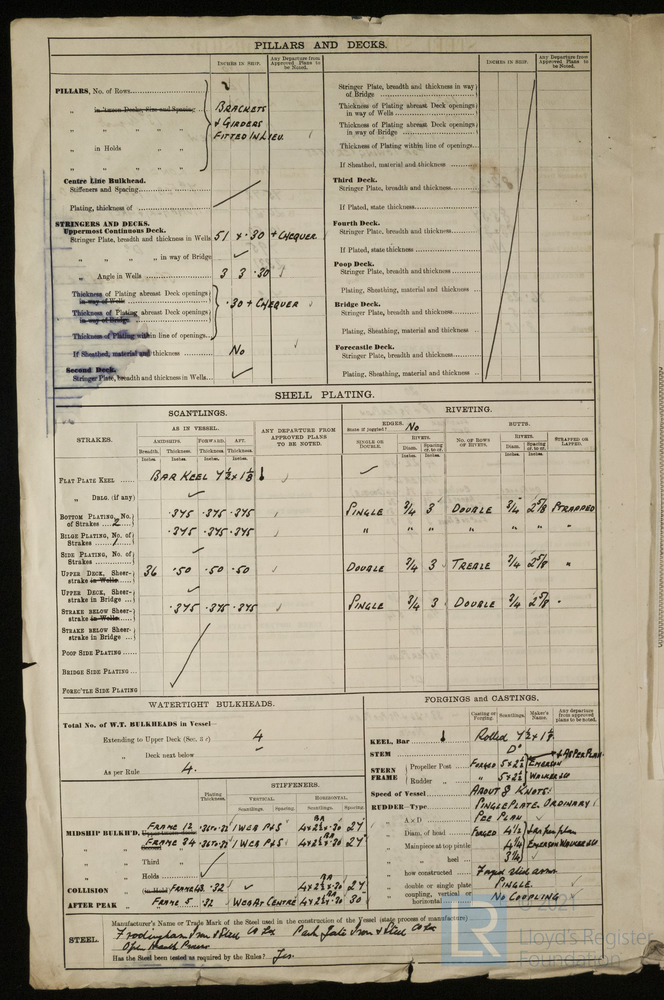 PILLARS AND DECKS.
INCHES IN SHIP.
Any Departure from Approved Plans to be Noted.
PILLARS, No. of Rows
" in 'Tween Decks, Size and Spacing
BRACKETS
" " "
& GIRDERS
" in Holds
FITTED IN LIEU.
" " "
Centre Line Bulkhead.
Stiffeners and Spacing
Plating, thickness of
STRINGERS AND DECKS.
Uppermost Continuous Deck.
Stringer Plate, breadth and thickness in Wells 51 x .30 + CHEQUER
" " " " in way of Bridge
" Angle in Wells 3 3 .30
Thickness of Plating abreast Deck openings in way of Wells
.30 + CHEQUER
Thickness of Plating abreast Deck openings in way of Bridge
Thickness of Plating within line of openings
If Sheathed, material and thickness No
Second Deck.
Stringer Plate, breadth and thickness in Wells
INCHES IN SHIP.
Any Departure from Approved Plans to be Noted.
Stringer Plate, breadth and thickness in way of Bridge
Thickness of Plating abreast Deck openings in way of Wells
Thickness of Plating abreast Deck openings in way of Bridge
Thickness of Plating within line of openings
If Sheathed, material and thickness
Third Deck.
Stringer Plate, breadth and thickness
If Plated, state thickness
Fourth Deck.
Stringer Plate, breadth and thickness
If Plated, state thickness
Poop Deck.
Stringer Plate, breadth and thickness
Plating, Sheathing, material and thickness
Bridge Deck.
Stringer Plate, breadth and thickness
Plating, Sheathing, material and thickness
Forecastle Deck.
Stringer Plate, breadth and thickness
Plating, Sheathing, material and thickness
SHELL PLATING.
SCANTLINGS.
RIVETING.
STRAKES.
AS IN VESSEL.
ANY DEPARTURE FROM APPROVED PLANS TO BE NOTED.
EDGES.
State if joggled? No
BUTTS.
AMIDSHIPS. FORWARD. AFT.
SINGLE OR DOUBLE.
RIVETS.
No. OF ROWS OF RIVETS.
RIVETS.
STRAPPED OR LAPPED.
Breadth. Thickness. Thickness. Thickness.
Diam. Spacing cr. to cr.
Diam. Spacing cr. to cr.
Inches. Inches. Inches. Inches.
Inches. Inches.
Inches. Inches.
FLAT PLATE KEEL BAR KEEL 7½ x 1⅛
" DBLG. (if any)
BOTTOM PLATING, No. of Strakes 2 .375 .375 .375 SINGLE 3/4 3 DOUBLE 3/4 2 5/8 STRAPPED
BILGE PLATING, No. of Strakes 1 .375 .375 .375 " " " " " " "
SIDE PLATING, No. of Strakes
UPPER DECK, Sheerstrake in Wells 36 .50 .50 .50 DOUBLE 3/4 3 TREBLE 3/4 2 5/8 "
UPPER DECK, Sheerstrake in Bridge
STRAKE BELOW Sheerstrake in Wells .375 .375 .375 SINGLE 3/4 3 DOUBLE 3/4 2 5/8 "
STRAKE BELOW Sheerstrake in Bridge
POOP SIDE PLATING
BRIDGE SIDE PLATING
FOREC'TLE SIDE PLATING
WATERTIGHT BULKHEADS.
Total No. of W.T. BULKHEADS in Vessel—
Extending to Upper Deck (Sec. 3 c) 4
" Deck next below
As per Rule 4.
Plating Thickness.
STIFFENERS.
VERTICAL. HORIZONTAL.
Scantlings. Spacing. Scantlings. Spacing.
MIDSHIP BULKH'D, FRAME 12 1 WEB P&S BA 27
" " FRAME 34 1 WEB P&S 27
" " Third
" " Holds
COLLISION " (In Hold) FRAME 43 .32 BA 27
AFTER PEAK " FRAME 5 .32 1 WEB AT CENTRE BA 30
FORGINGS and CASTINGS.
Casting or Forging. Scantlings. Maker's Name. Any departure from approved plans to be noted.
KEEL, Bar Rolled 7½ x 1⅛
STEM Do
STERN FRAME
Propeller Post FORGED 5 x 2½ EMERSON AS PER PLAN
Rudder " " 5 x 2½ WALKER Ld
Speed of Vessel ABOUT 8 KNOTS
RUDDER—Type SINGLE PLATE. ORDINARY
" A x D SEE PLAN
" Diam. of head FORGED 4½ as per plan
" Mainpiece at top pintle 4¼ EMERSON WALKER Ld
" " heel 3¼
" how constructed Forged slid arms
" double or single plate SINGLE.
" coupling, vertical or horizontal NO COUPLING
STEEL.
Manufacturer's Name or Trade Mark of the Steel used in the construction of the Vessel (state process of manufacture)
Frodingham Iron & Steel Co Ltd Park Gate Iron & Steel Co Ld
Open Hearth Process
Has the Steel been tested as required by the Rules? Yes.
LR
Lloyd's Register
Foundation